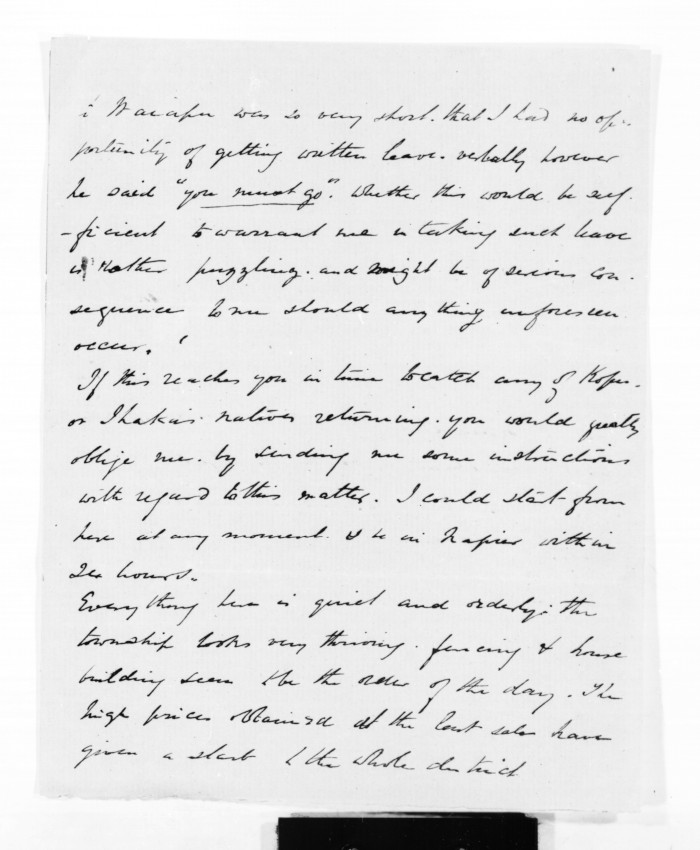 Waiapu was so very short. that I had no op-
portunity of getting written leave. verbally however
he said "you must go". Whether this would be suf-
-ficient to warrant me in taking such leave
is rather puzzling. and might be of serious con-
sequence to me should anything unforeseen
occur.
If this reaches you in time to catch any of Kopu.
or Ihaka's natives returning. you would greatly
oblige me. by sending me some instructions
with regard to this matter. I could start from
here at any moment. & be in Napier within
hours.
Everything here is quiet and orderly: the
township looks very thriving. fencing & house
building seem to be the order of the day. The
high prices obtained at the last sales have
given a start to the whole district